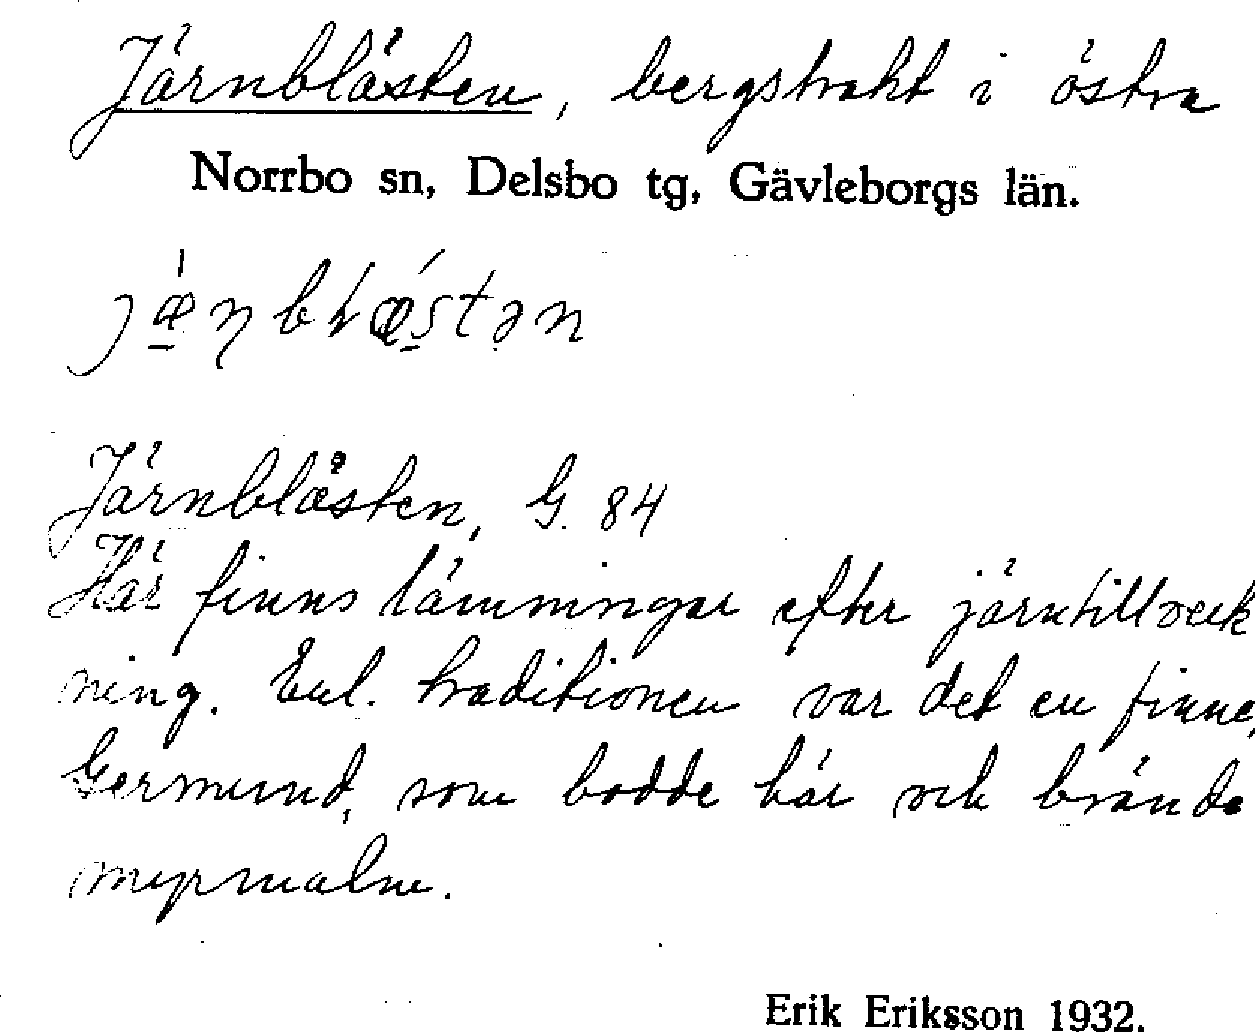 Järnblästen, bergstrakt i östra
Norrbo sn, Delsbo tg, Gävleborgs län.
Järnblåsten, G. 84
Här finns lämningar efter järntillverk
ning. Enl. traditionen var det en finne,
Germund, som bodde här och brände
myrmalm.
Erik Eriksson 1932.